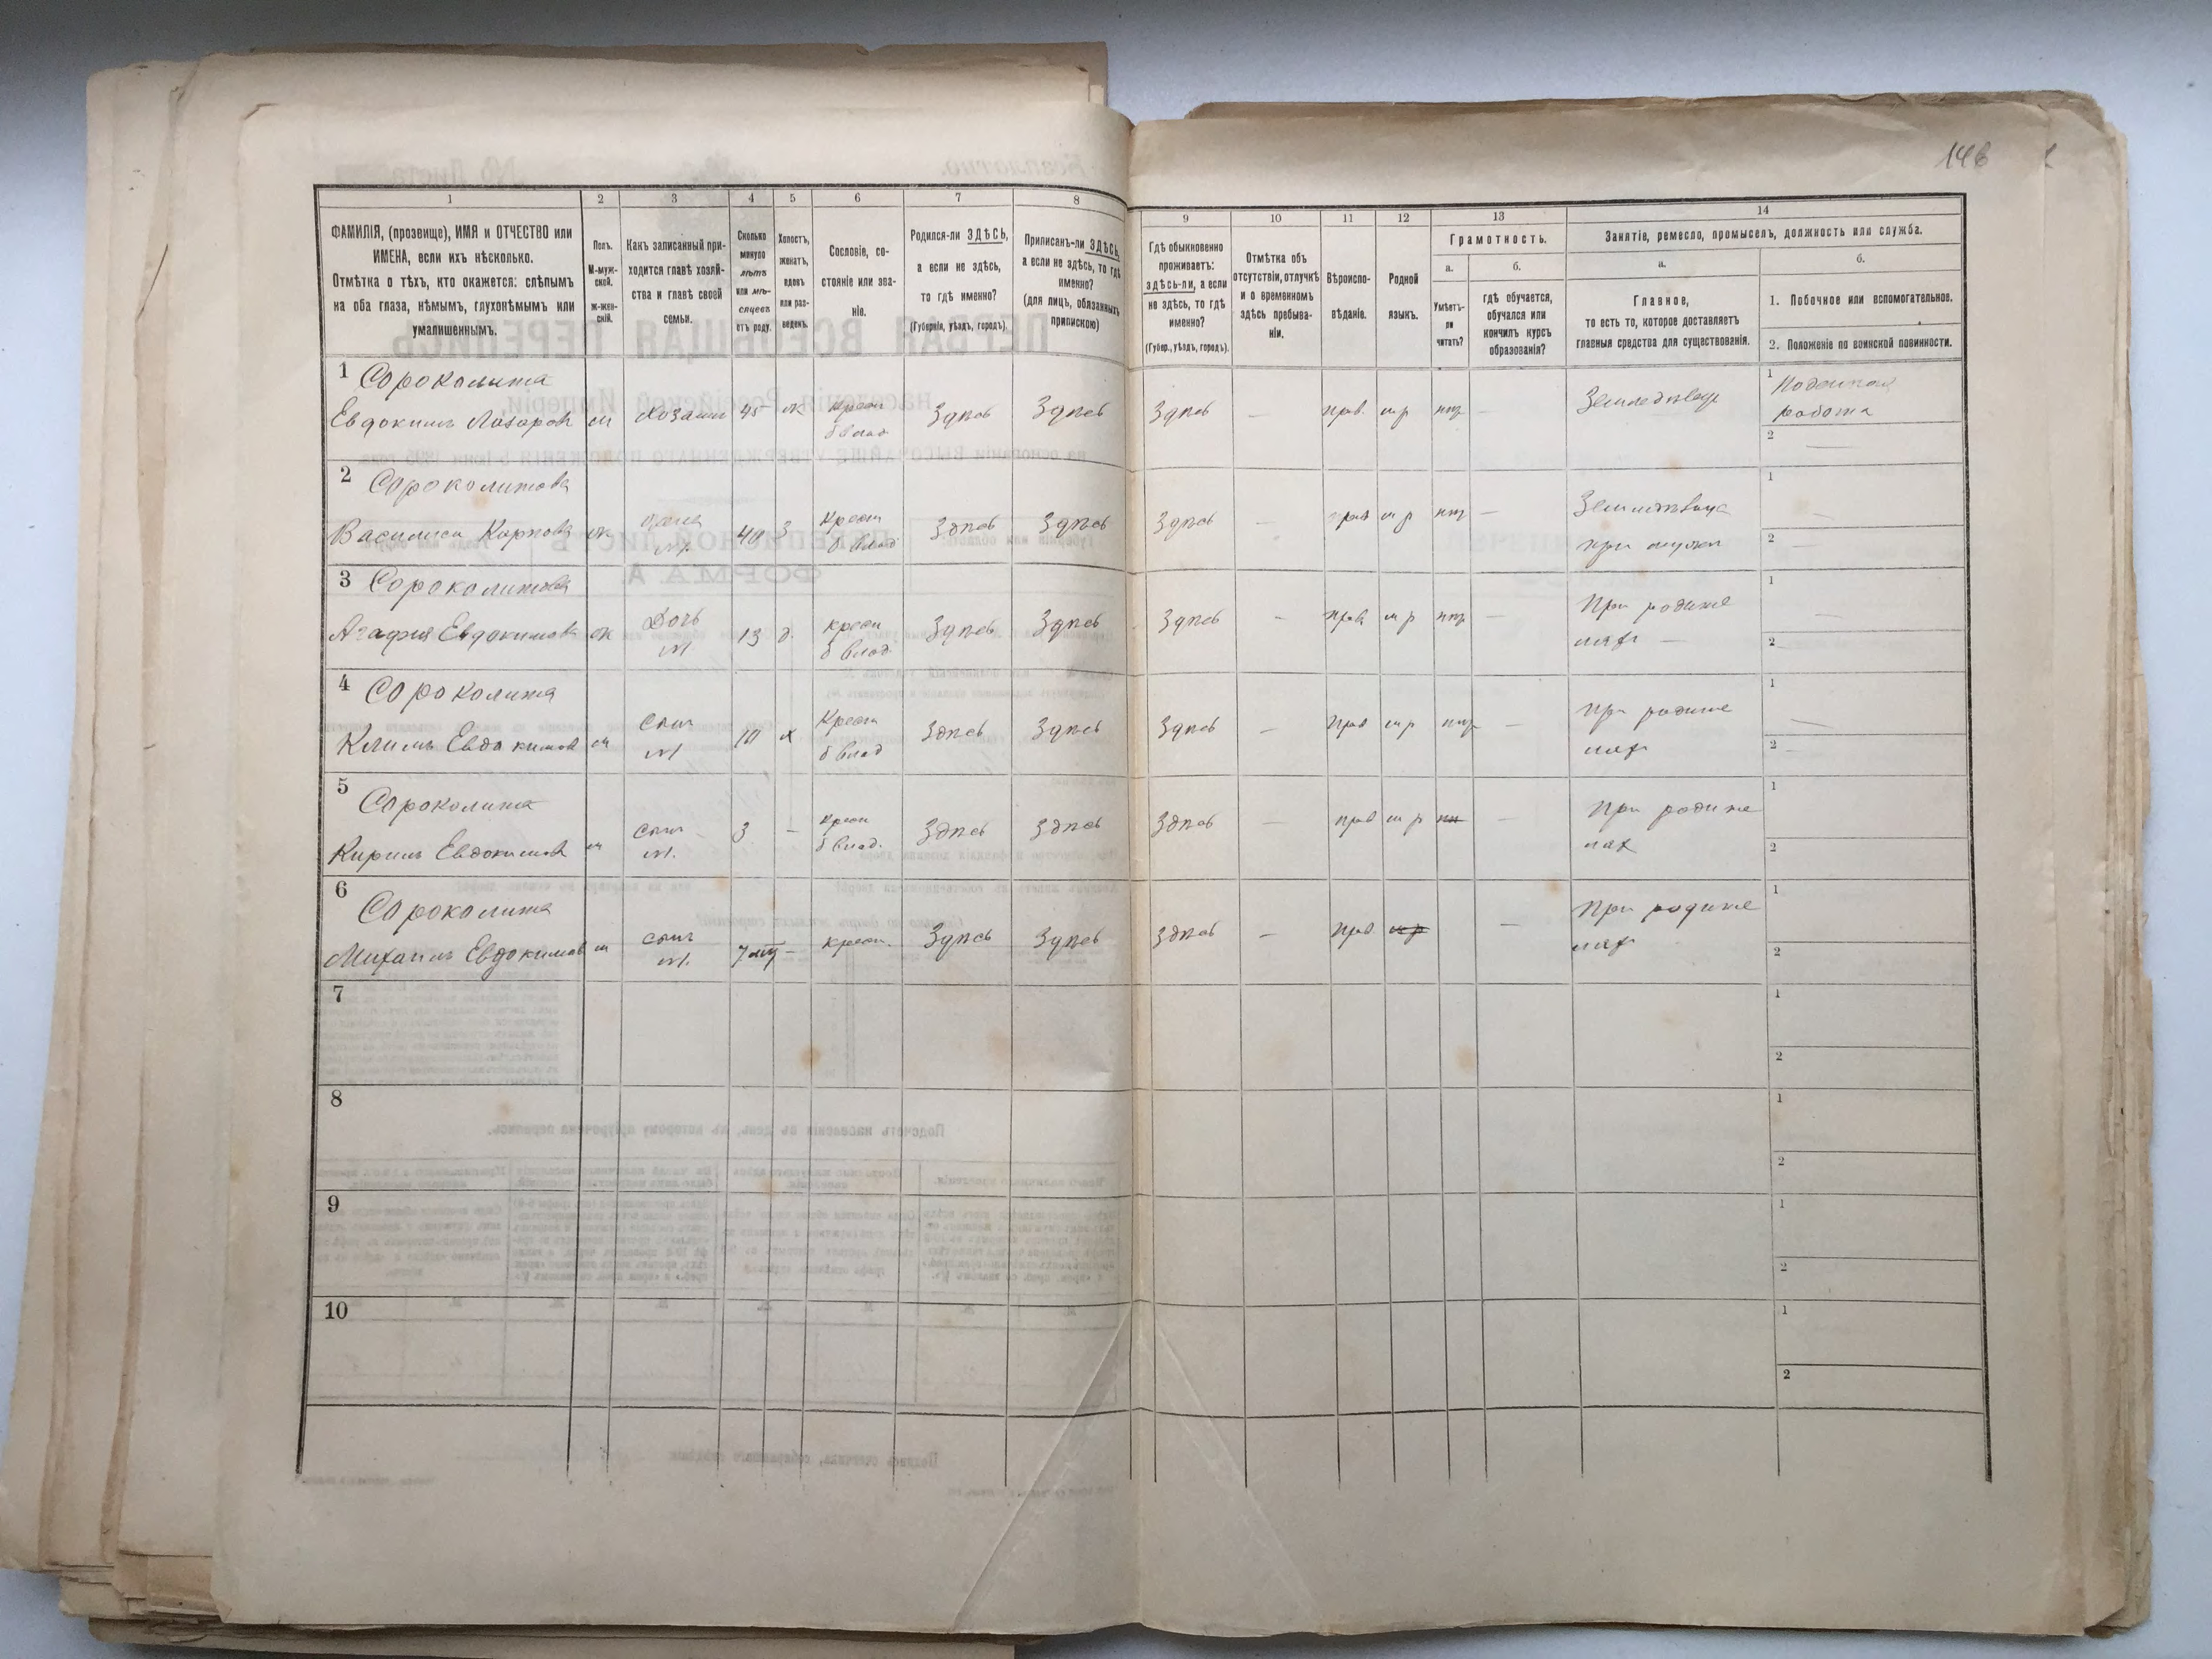 146
1
2
3
4
5
6
7
8
9
10
11
12
13
14
ФАМИЛІЯ, (прозвище), ИМЯ и ОТЧЕСТВО или
ИМЕНА, если ихъ нѣсколько.
Отмѣтка о тѣхъ, кто окажется: слѣпымъ
на оба глаза, нѣмымъ, глухонѣмымъ или
умалишеннымъ.
Полъ.
М-муж-
ской.
ж-жен-
скій.
Какъ записанный при-
ходится главѣ хозяй-
ства и главѣ своей
семьи.
Сколько
минуло
лѣтъ
или мѣ-
сяцевъ
отъ роду.
Холостъ,
женатъ,
вдовъ
или раз-
веденъ.
Сословіе, со-
стояніе или зва-
ніе.
Родился-ли ЗДѢСЬ,
а если не здѣсь,
то гдѣ именно?
(Губернія, уѣздъ, городъ).
Приписанъ-ли ЗДѢСЬ,
а если не здѣсь, то гдѣ
именно?
(для лицъ, обязанныхъ
припискою)
Гдѣ обыкновенно
проживаетъ:
здѣсь-ли, а если
не здѣсь, то гдѣ
именно?
(Губер., уѣздъ, городъ).
Отмѣтка объ
отсутствіи, отлучкѣ
и о временномъ
здѣсь пребыва-
ніи.
Вѣроиспо-
вѣданіе.
Родной
языкъ.
Грамотность.
а.
Умѣетъ-
ли
читать?
б.
гдѣ обучается,
обучался или
кончилъ курсъ
образованія?
Занятіе, ремесло, промыселъ, должность или служба.
а.
Главное,
то есть то, которое доставляетъ
главныя средства для существованія.
б.
1. Побочное или вспомогательное.
2. Положеніе по воинской повинности.
1 Сороколита
Евдокимъ Лазаровъ м Хозяинъ 45 ж крест б влад Здѣсь Здѣсь Здѣсь — прав. м р нѣт — Земледѣлец
1 Поденная
работа
2 —
2 Сороколитова
Василиса Карпова ж жена м. 40 З Крест б влад Здѣсь Здѣсь Здѣсь — прав м р нѣт —
при мужѣ
1 —
2 —
3 Сороколитова
Агафия Евдокимова ж Дочь м 13 д. крест б влад Здѣсь Здѣсь Здѣсь — прав м р нѣт — При родите
лях —
1 —
2
4 Сороколита
Климъ Евдокимов м сынъ м 10 х Крест б влад Здѣсь Здѣсь Здѣсь — Прав м р нѣт — При родите
лях
1 —
2 —
5 Сороколита
Кирилъ Евдокимовъ м сынъ м. 3 — крест б влад. Здѣсь Здѣсь Здѣсь — прав м р — При родите
лях
1
2
6 Сороколита
Михаилъ Евдокимовъ м сынъ м. 7 мц — крест. Здѣсь Здѣсь Здѣсь — прав м р — При родите
лях
1
2
7
1
2
8
1
2
9
1
2
10
1
2